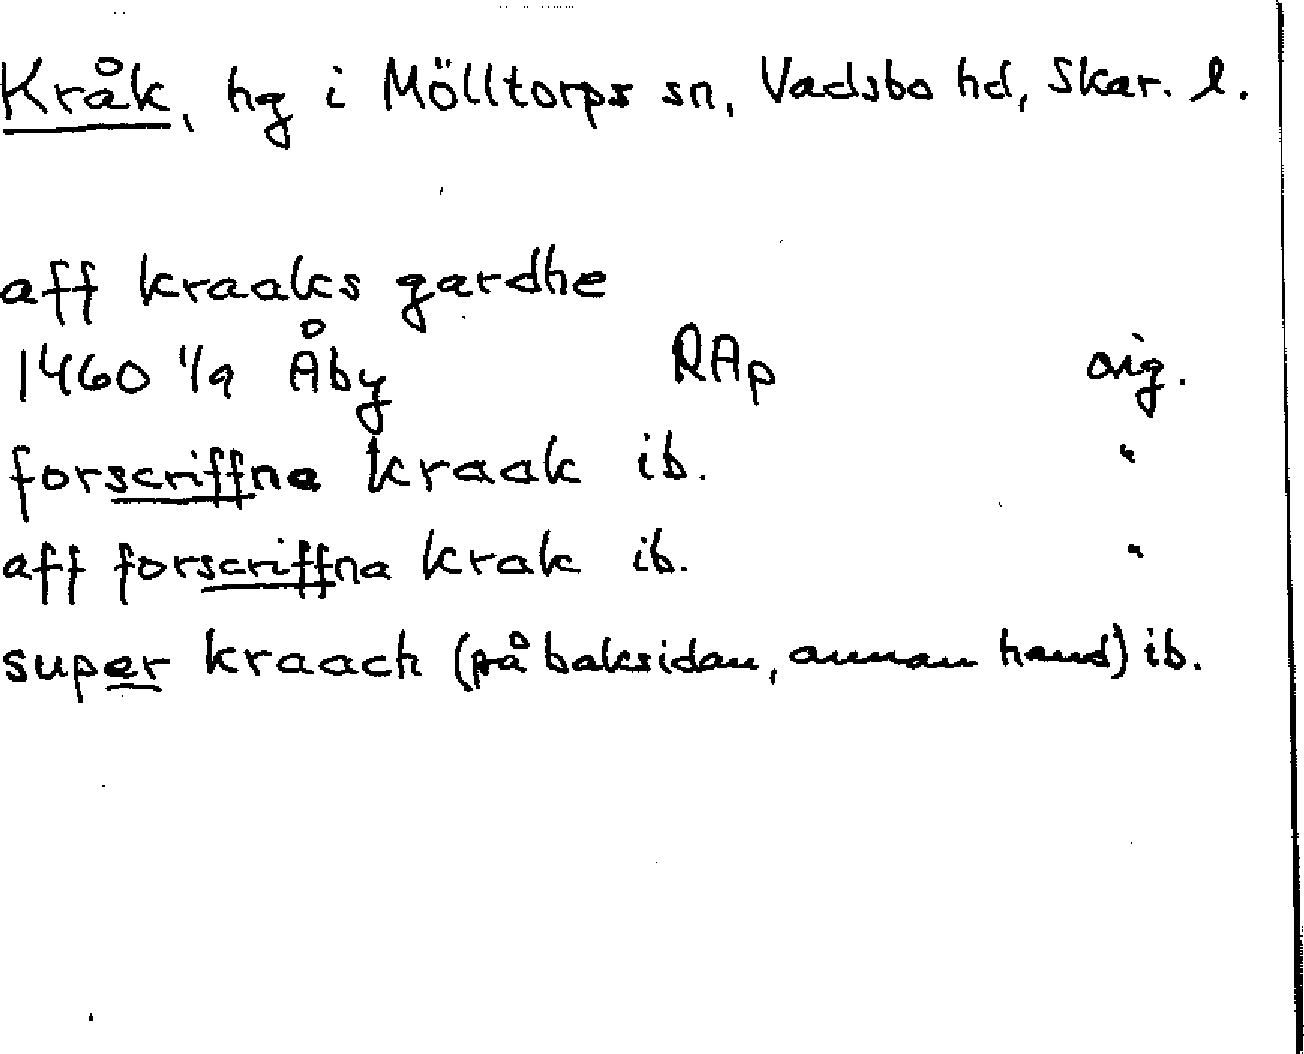 Kråk, hg i Mölltorps sn, Vadsbo hd, Skar. l.
aff kraaks gardhe
1460 1/9 Åby RAp orig.
forscriffne kraak ib. "
aff forscriffna krak ib. "
super kraach (på baksidan, annan hand) ib.